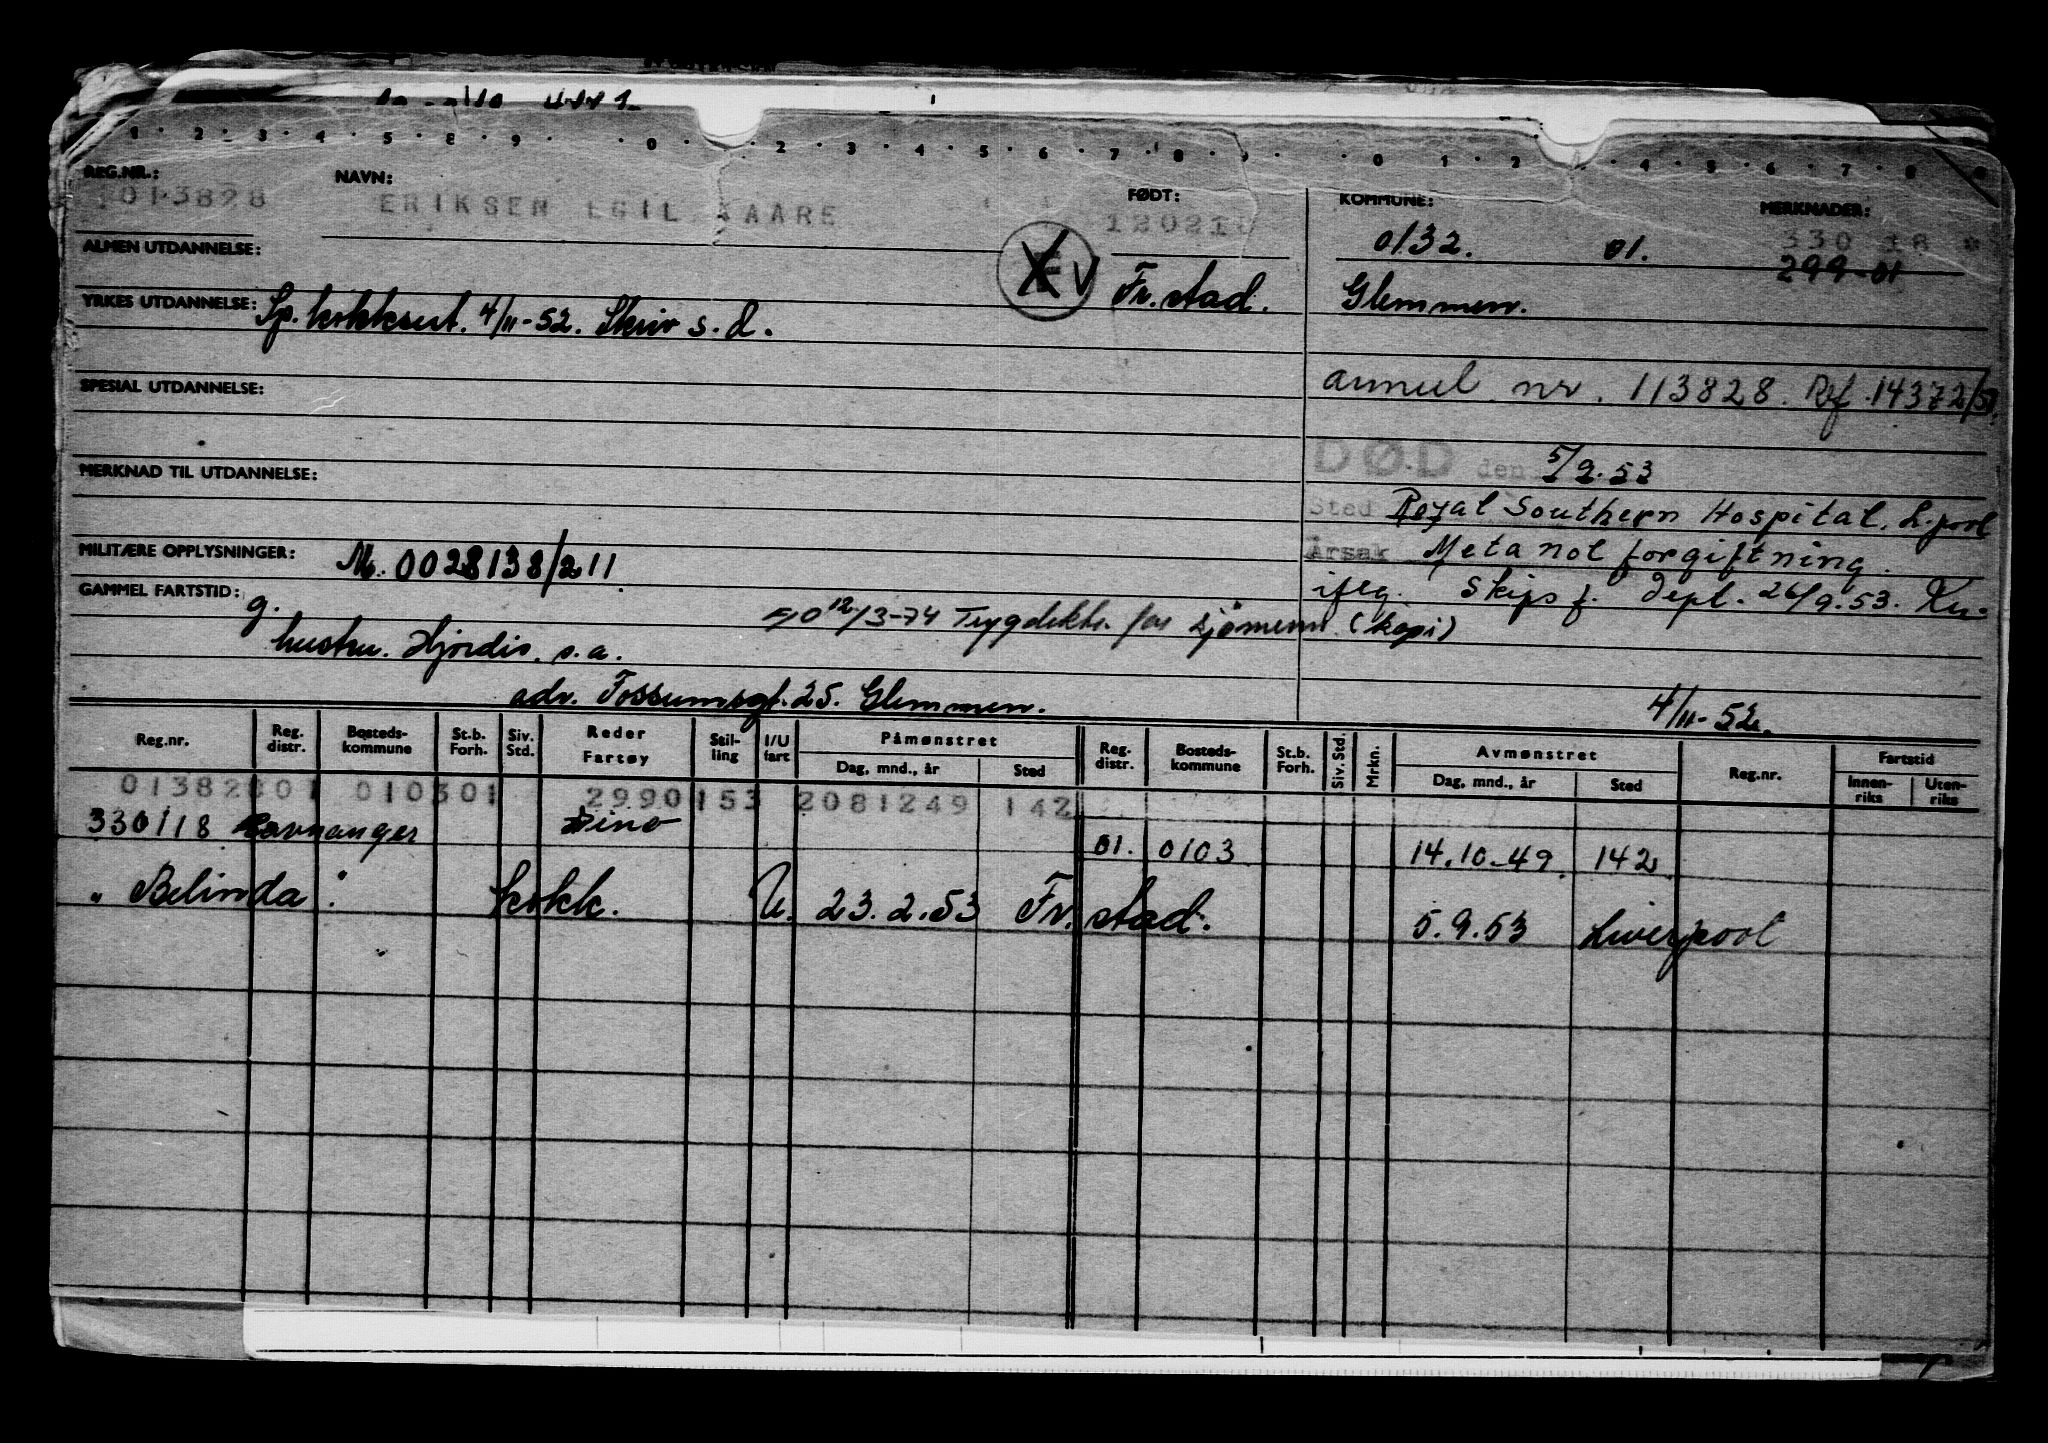 1 · 2 · 3 · 4 · 5 · 6 · 9 · 0 · 2 · 3 · 4 · 5 · 6 · 7 · 8 · 9 · 0 1 · 2 · 4 · 5 · 6 · 7 · 8
REG.NR.: NAVN: FØDT: KOMMUNE: MERKNADER:
1013828 ERIKSEN EGIL KAARE 120210 0132. 01. 330 18 *
299-01
ALMEN UTDANNELSE: Fr.stad. Glemmen.
YRKES UTDANNELSE: Sp. kokksert. 4/11-52. Skriv s.d.
SPESIAL UTDANNELSE: annul. nr. 113828. Ref. 14372/
DØD den 5/9.53
MERKNAD TIL UTDANNELSE:
Sted Royal Southern Hospital. L.pool
MILITÆRE OPPLYSNINGER: M. 0028138/211 Årsak Metanol forgiftning.
GAMMEL FARTSTID: g. iflg. Skips f. Dept. 26/9.53.
12/3-74 Trygdekt. for sjömenn (kopi)
hustru. Hjordis. s.a.
adr. Fossumsgt. 25. Glemmen. 4/11-52.
Reg.nr. Reg. distr. Bosteds- kommune St.b. Forh. Siv. Std. Reder Fartøy Stil- ling I/U fart Påmønstret Dag, mnd., år Sted Reg. distr. Bosteds- kommune St.b. Forh. Siv. Std. Mrkn. Avmønstret Dag, mnd., år Sted Reg.nr. Fartstid Innen- riks Uten- riks
01382801 010301 2990153 2081249 142
330118 Ravnanger Dino 01. 0103 14.10-49. 142
" Belinda " . kokk. U. 23.2.53 Fr.stad. 5.9.53 Liverpool